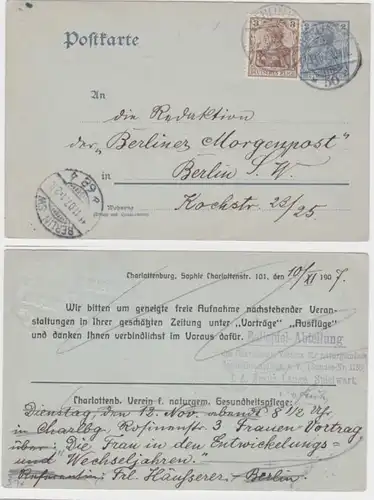 Postkarte
3 3
DEUTSCHES REICH
2 2
An
die Redaktion
der „Berliner Morgenpost“
in Berlin S. W.
Kochstr. 23/25
Wohnung
(Straße und Hausnummer)
BERLIN
SW
* 68 *
Charlottenburg, Sophie Charlottenstr. 101, den 10/XI 1907.
Wir bitten um geneigte freie Aufnahme nachstehender Veran-
staltungen in Ihrer geschätzten Zeitung unter „Vorträge“ „Ausflüge“
und danken Ihnen verbindlichst im Voraus dafür.
Abteilung
Charlottenb. Verein f. naturgem. Gesundheitspflege:
Dienstag, den 12. Nov. abends 8 1/2 Uhr,
in Charlbg. Rosinenstr. 3 Frauen Vortrag
über: „Die Frau in den Entwickelungs-
und „Wechseljahren.“
Referentin: Frl. Häusserer - Berlin